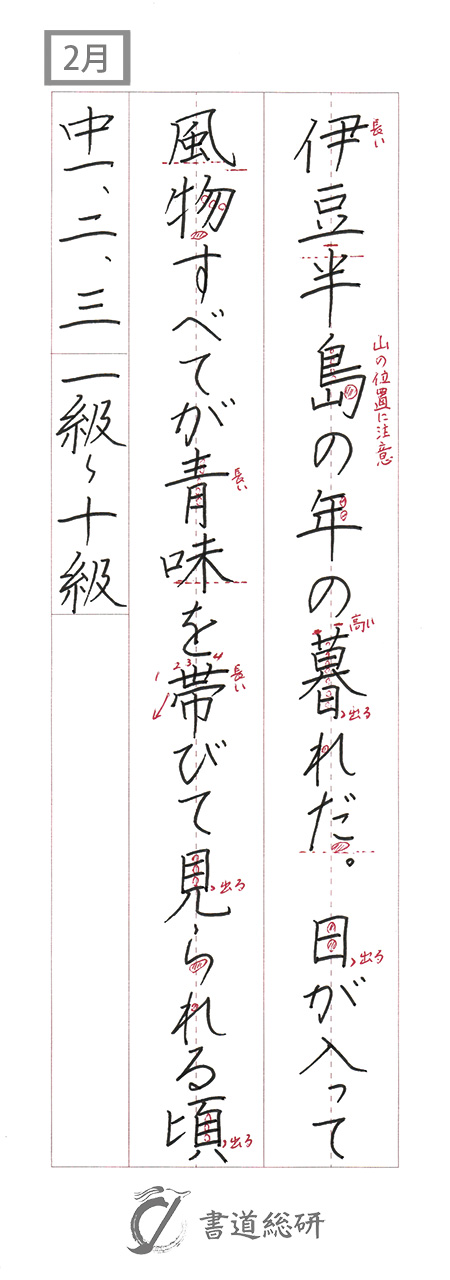 2月
伊豆半島の年の暮れだ。 日が入って
風物すべてが青味を帯びて見られる頃
中一、二、三 一級〜十級
長い
山の位置に注意
高い
出る
出る
長い
1 2 3 4
長い
出る
出る
書道総研